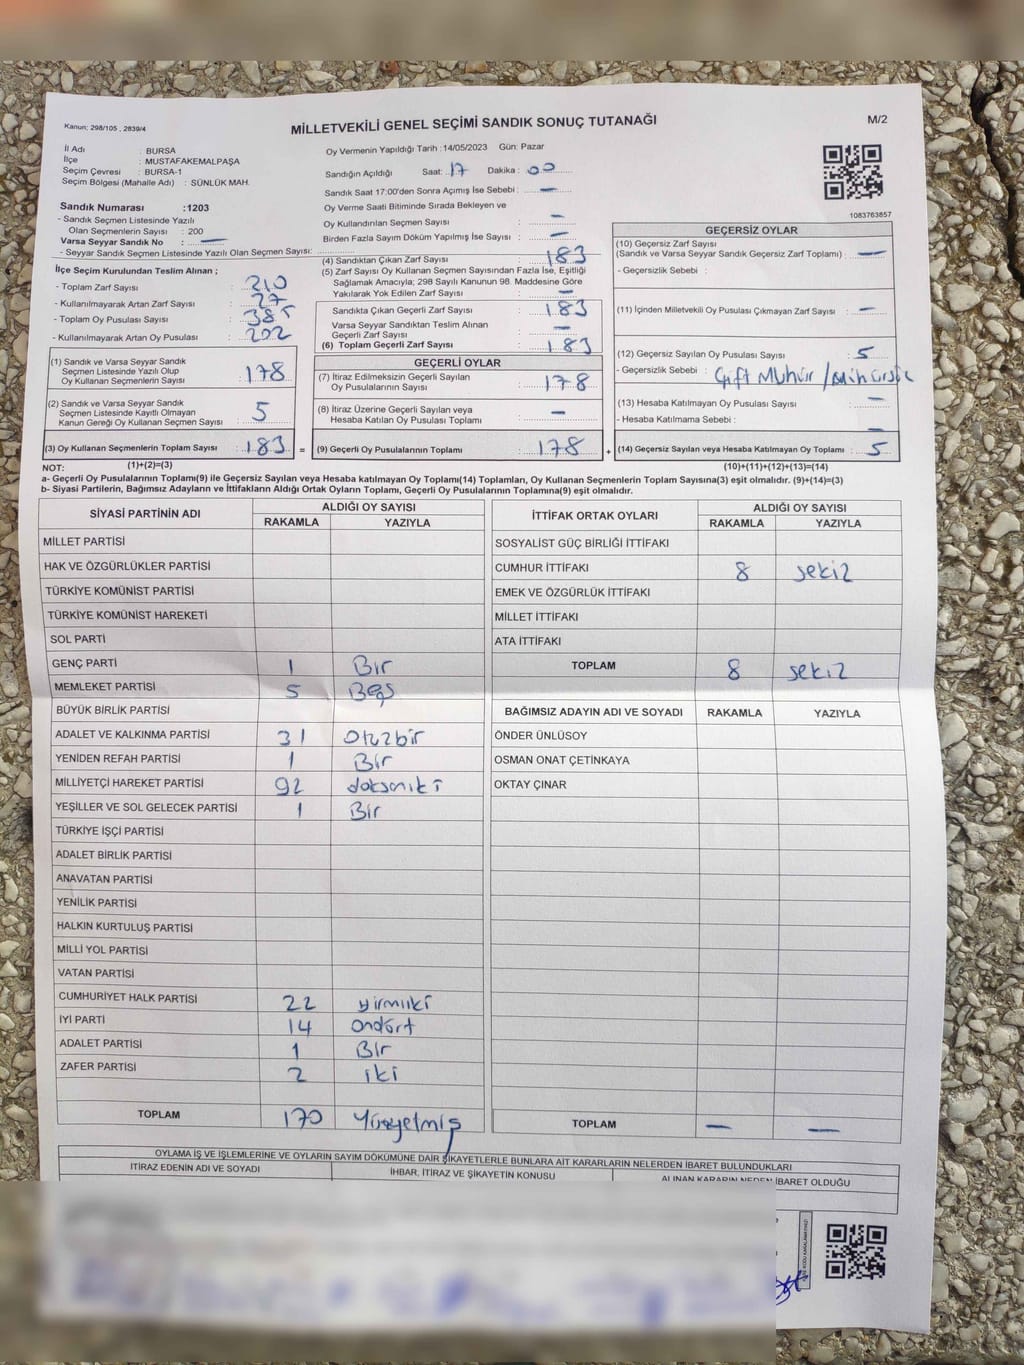 Kanun: 298/105 , 2839/4
MİLLETVEKİLİ GENEL SEÇİMİ SANDIK SONUÇ TUTANAĞI
M/2
İl Adı : BURSA
İlçe : MUSTAFAKEMALPAŞA
Seçim Çevresi : BURSA-1
Seçim Bölgesi (Mahalle Adı) : SÜNLÜK MAH.
Sandık Numarası : 1203
- Sandık Seçmen Listesinde Yazılı
Olan Seçmenlerin Sayısı : 200
Varsa Seyyar Sandık No : —
- Seyyar Sandık Seçmen Listesinde Yazılı Olan Seçmen Sayısı:
İlçe Seçim Kurulundan Teslim Alınan ;
- Toplam Zarf Sayısı : 210
- Kullanılmayarak Artan Zarf Sayısı : 27
- Toplam Oy Pusulası Sayısı : 385
- Kullanılmayarak Artan Oy Pusulası : 202
(1) Sandık ve Varsa Seyyar Sandık
Seçmen Listesinde Yazılı Olup
Oy Kullanan Seçmenlerin Sayısı : 178
(2) Sandık ve Varsa Seyyar Sandık
Seçmen Listesinde Kayıtlı Olmayan
Kanun Gereği Oy Kullanan Seçmen Sayısı : 5
(3) Oy Kullanan Seçmenlerin Toplam Sayısı : 183 =
Oy Vermenin Yapıldığı Tarih :14/05/2023 Gün: Pazar
Sandığın Açıldığı Saat: 17 Dakika : 00
Sandık Saat 17:00'den Sonra Açımış İse Sebebi : —
Oy Verme Saati Bitiminde Sırada Bekleyen ve
Oy Kullandırılan Seçmen Sayısı : —
Birden Fazla Sayım Döküm Yapılmış İse Sayısı : —
(4) Sandıktan Çıkan Zarf Sayısı : 183
(5) Zarf Sayısı Oy Kullanan Seçmen Sayısından Fazla İse, Eşitliği
Sağlamak Amacıyla; 298 Sayılı Kanunun 98. Maddesine Göre
Yakılarak Yok Edilen Zarf Sayısı : —
Sandıkta Çıkan Geçerli Zarf Sayısı : 183
Varsa Seyyar Sandıktan Teslim Alınan
Geçerli Zarf Sayısı : —
(6) Toplam Geçerli Zarf Sayısı : 183
GEÇERLİ OYLAR
(7) İtiraz Edilmeksizin Geçerli Sayılan
Oy Pusulalarının Sayısı : 178
(8) İtiraz Üzerine Geçerli Sayılan veya
Hesaba Katılan Oy Pusulası Toplamı : —
(9) Geçerli Oy Pusulalarının Toplamı : 178 +
1083763857
GEÇERSİZ OYLAR
(10) Geçersiz Zarf Sayısı
(Sandık ve Varsa Seyyar Sandık Geçersiz Zarf Toplamı) : —
- Geçersizlik Sebebi :
(11) İçinden Milletvekili Oy Pusulası Çıkmayan Zarf Sayısı : —
(12) Geçersiz Sayılan Oy Pusulası Sayısı : 5
- Geçersizlik Sebebi : Çift Mühür /
(13) Hesaba Katılmayan Oy Pusulası Sayısı : —
- Hesaba Katılmama Sebebi : —
(14) Geçersiz Sayılan veya Hesaba Katılmayan Oy Toplamı : 5
NOT: (1)+(2)=(3)
(10)+(11)+(12)+(13)=(14)
a- Geçerli Oy Pusulalarının Toplamı(9) ile Geçersiz Sayılan veya Hesaba katılmayan Oy Toplamı(14) Toplamları, Oy Kullanan Seçmenlerin Toplam Sayısına(3) eşit olmalıdır. (9)+(14)=(3)
b- Siyasi Partilerin, Bağımsız Adayların ve İttifakların Aldığı Ortak Oyların Toplamı, Geçerli Oy Pusulalarının Toplamına(9) eşit olmalıdır.
SİYASİ PARTİNİN ADI ALDIĞI OY SAYISI
RAKAMLA YAZIYLA
MİLLET PARTİSİ
HAK VE ÖZGÜRLÜKLER PARTİSİ
TÜRKİYE KOMÜNİST PARTİSİ
TÜRKİYE KOMÜNİST HAREKETİ
SOL PARTİ
GENÇ PARTİ 1 Bir
MEMLEKET PARTİSİ 5 Beş
BÜYÜK BİRLİK PARTİSİ
ADALET VE KALKINMA PARTİSİ 31 Otuzbir
YENİDEN REFAH PARTİSİ 1 Bir
MİLLİYETÇİ HAREKET PARTİSİ 92 doksaniki
YEŞİLLER VE SOL GELECEK PARTİSİ 1 Bir
TÜRKİYE İŞÇİ PARTİSİ
ADALET BİRLİK PARTİSİ
ANAVATAN PARTİSİ
YENİLİK PARTİSİ
HALKIN KURTULUŞ PARTİSİ
MİLLİ YOL PARTİSİ
VATAN PARTİSİ
CUMHURİYET HALK PARTİSİ 22 yirmiiki
İYİ PARTİ 14 ondört
ADALET PARTİSİ 1 Bir
ZAFER PARTİSİ 2 iki
TOPLAM 170 Yüzyetmiş
İTTİFAK ORTAK OYLARI ALDIĞI OY SAYISI
RAKAMLA YAZIYLA
SOSYALİST GÜÇ BİRLİĞİ İTTİFAKI
CUMHUR İTTİFAKI 8 sekiz
EMEK VE ÖZGÜRLÜK İTTİFAKI
MİLLET İTTİFAKI
ATA İTTİFAKI
TOPLAM 8 sekiz
BAĞIMSIZ ADAYIN ADI VE SOYADI RAKAMLA YAZIYLA
ÖNDER ÜNLÜSOY
OSMAN ONAT ÇETİNKAYA
OKTAY ÇINAR
TOPLAM — —
OYLAMA İŞ VE İŞLEMLERİNE VE OYLARIN SAYIM DÖKÜMÜNE DAİR ŞİKAYETLERLE BUNLARA AİT KARARLARIN NELERDEN İBARET BULUNDUKLARI
İTİRAZ EDENİN ADI VE SOYADI İHBAR, İTİRAZ VE ŞİKAYETİN KONUSU ALINAN KARARIN NEDEN İBARET OLDUĞU